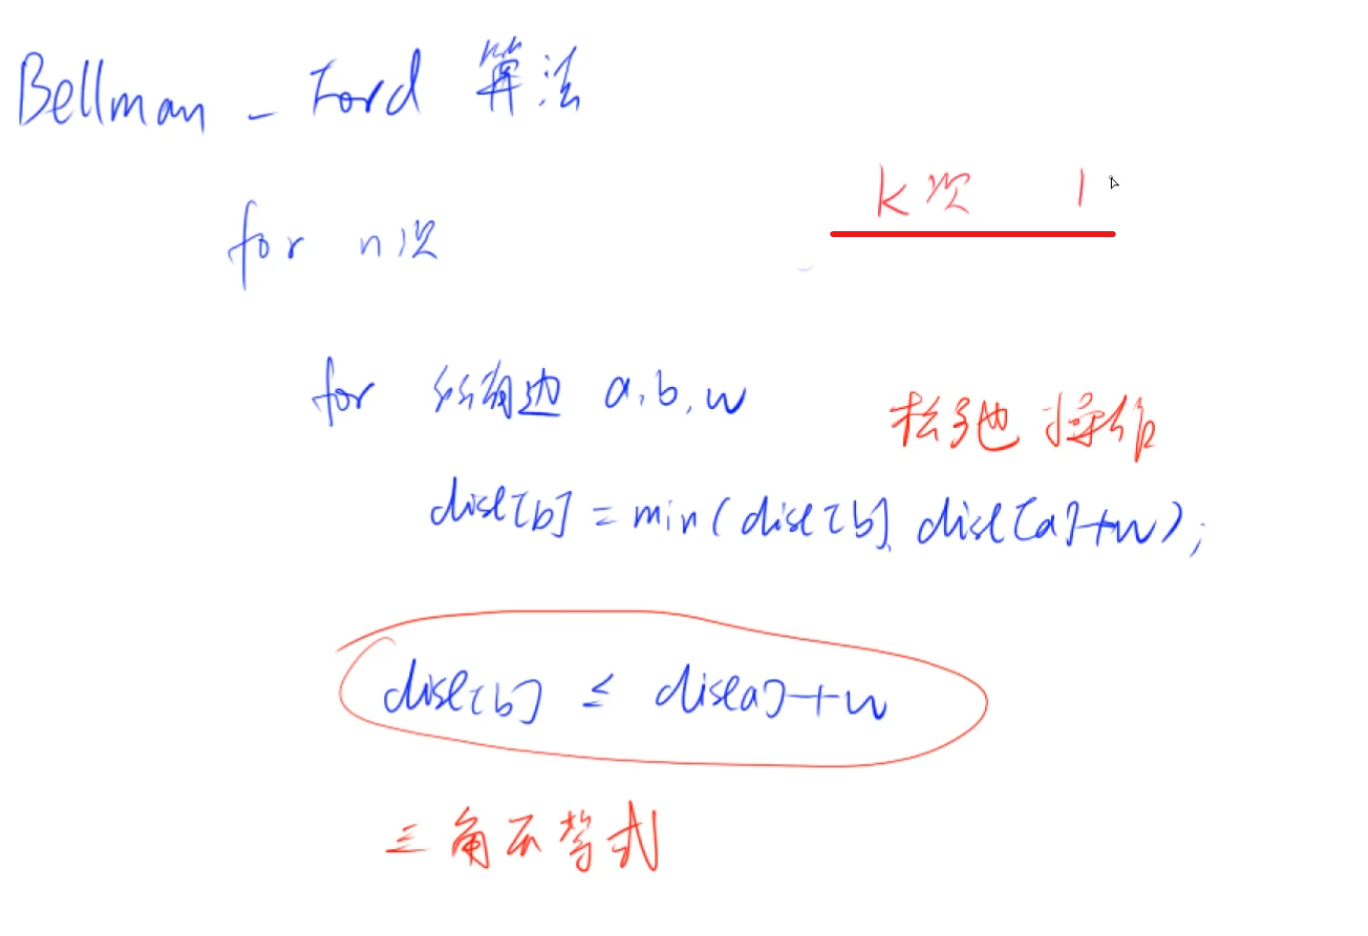 Bellman - Ford 算法
k次 1
for n次
for 所有边 a,b,w
松弛操作
dist[b] = min(dist[b], dist[a]+w);
dist[b] ≤ dist[a]+w
三角不等式